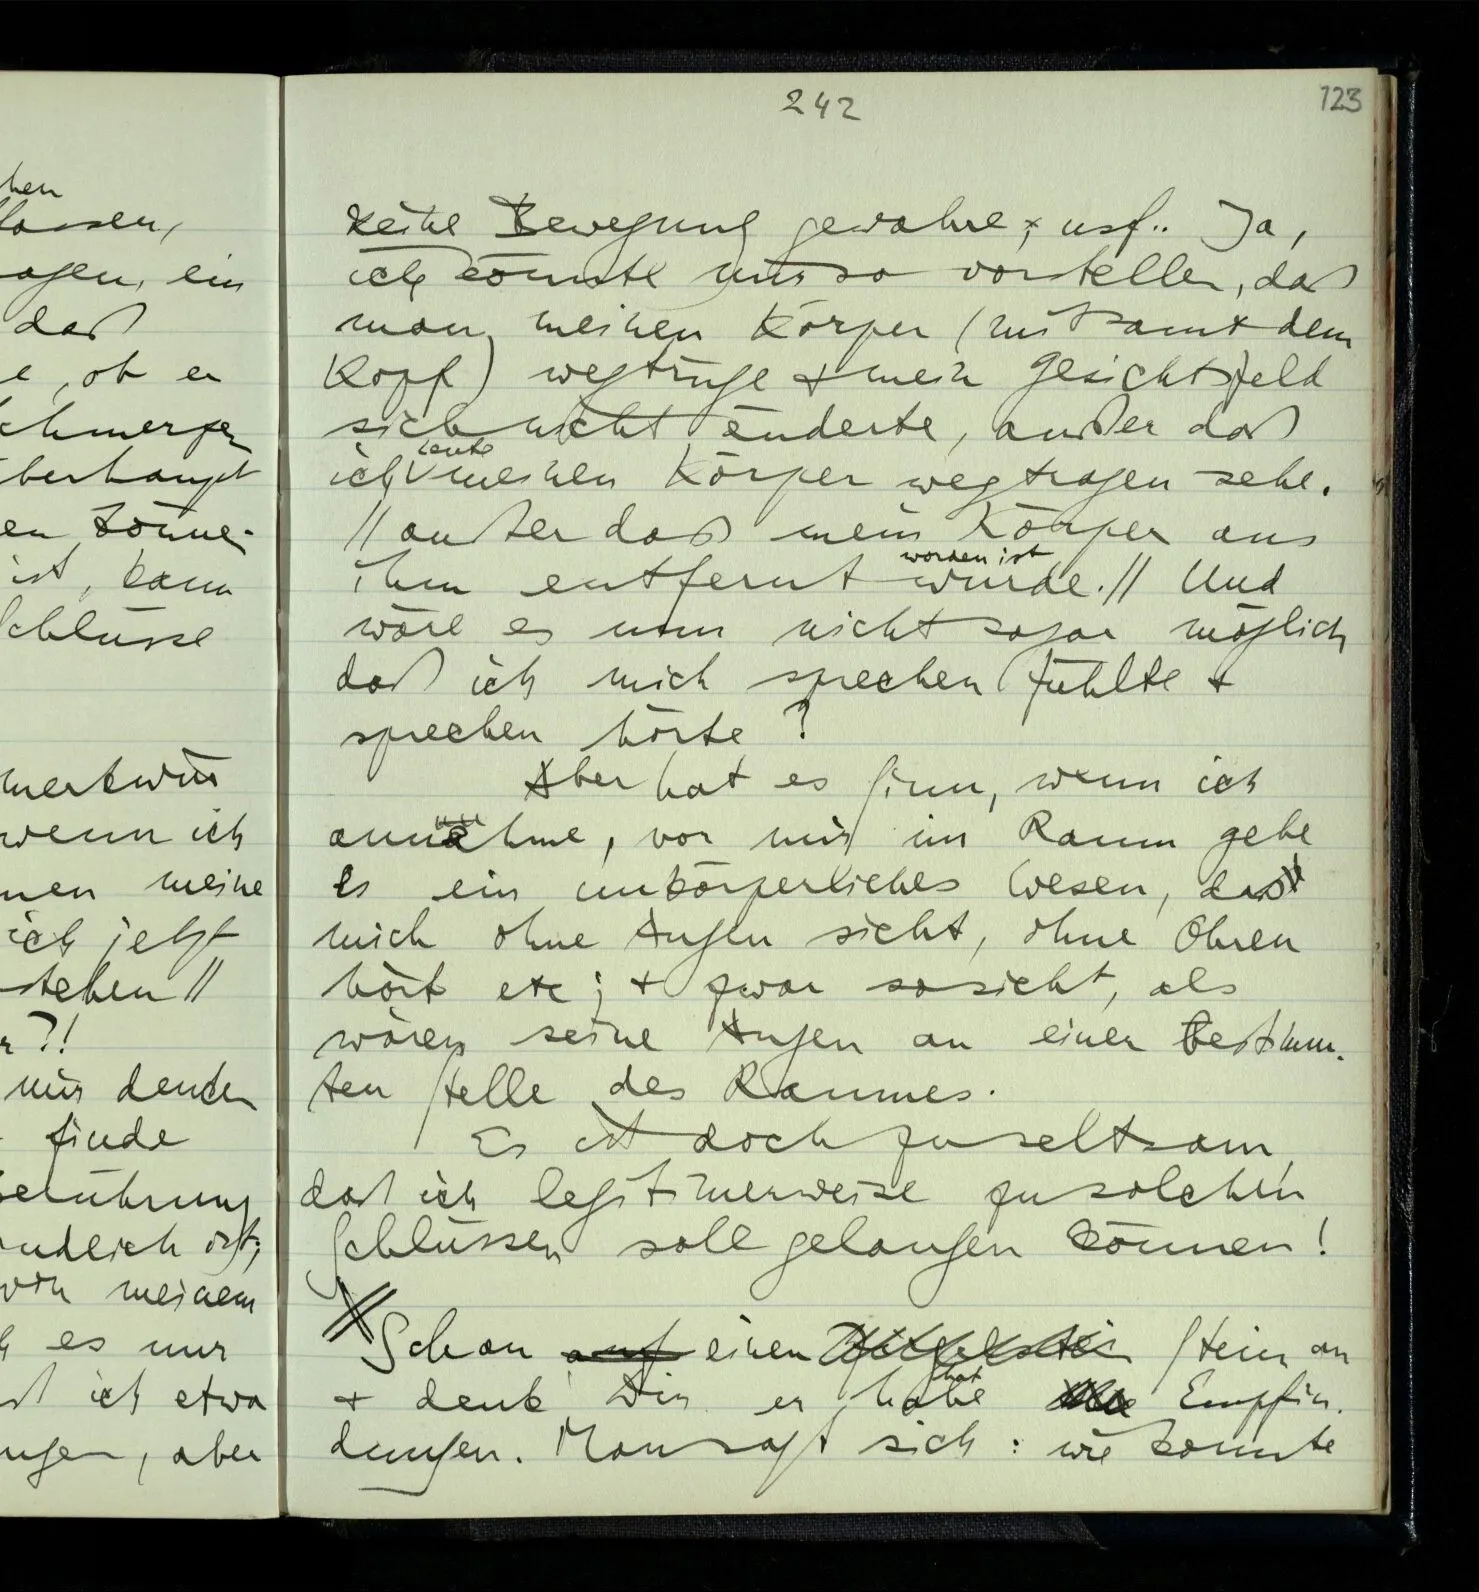 hen
lassen,
agen, ein
daß
e, ob er
chmerzen
berhaupt
en könne-
ist, kann
chlüsse
merkwür
wenn ich
nen meine
ich jetzt
stehen //
r?!
mir denken
finde
berührung
endlich ist;
von meinem
es nur
ich etwa
ngen, aber
242
123
keine Bewegung gewahre, usf.. Ja,
ich könnte mir so vorstellen, daß
man meinen Körper (mitsamt dem
Kopf) wegtrüge & mein Gesichtsfeld
sich nicht änderte, außer daß
ich Leute meinen Körper wegtragen sehe.
// außer daß mein Körper aus
worden ist
ihm entfernt wurde. // Und
wäre es nun nicht sogar möglich
daß ich mich sprechen fühlte &
sprechen hörte ?
Aber hat es Sinn, wenn ich
annehme, vor mir im Raum gebe
es ein unkörperliches Wesen, das
mich ohne Augen sieht, ohne Ohren
hört etc; & zwar so sieht, als
wären seine Augen an einer bestimm-
ten Stelle des Raumes.
Es ist doch zu seltsam,
daß ich legitimerweise zu solchen
Schlüssen soll gelangen können!
Schau auf einen Stein an
hat
& denk Dir er habe Empfin-
dungen. Man sagt sich: wie konnte